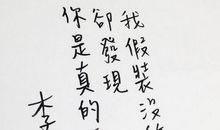 我假裝沒
卻發現
你是真的
李